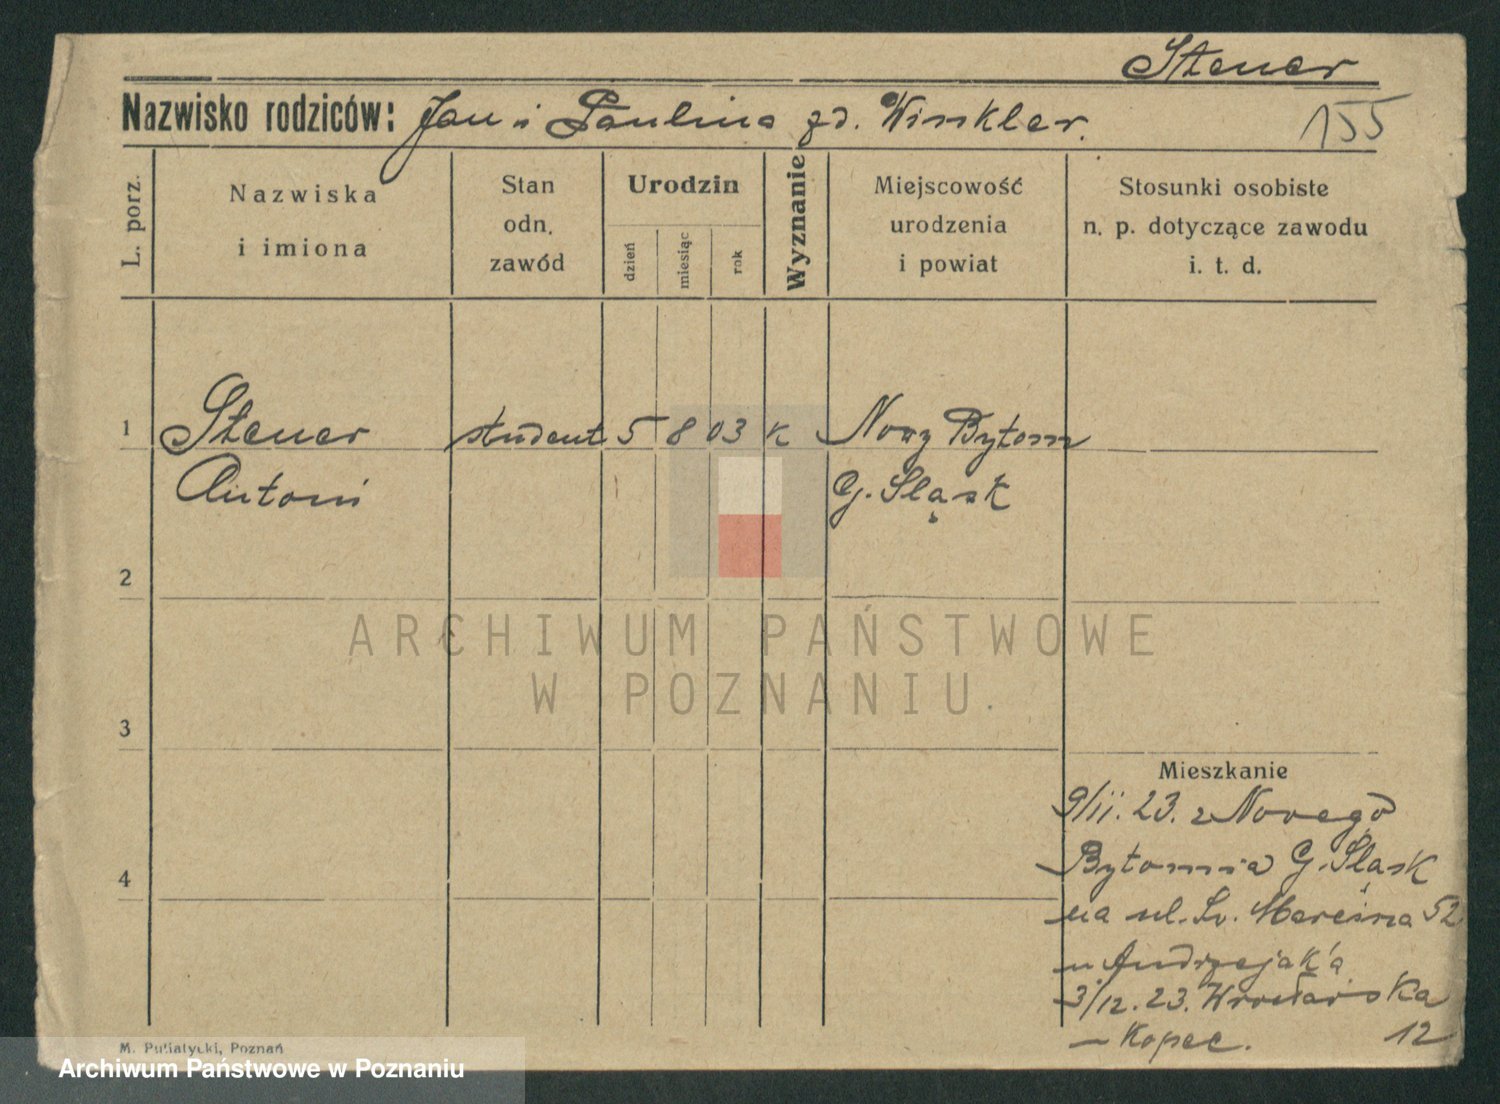 Steuer
Nazwisko rodziców: Jan i Paulina zd. Winkler.
155
L. porz.
Nazwiska
i imiona
Stan
odn.
zawód
Urodzin
dzień
miesiąc
rok
Wyznanie
Miejscowość
urodzenia
i powiat
Stosunki osobiste
n. p. dotyczące zawodu
i. t. d.
1 Steuer student 5 8 03 K Nowy Bytom
Antoni G. Śląsk
2
ARCHIWUM PAŃSTWOWE
W POZNANIU
3
Mieszkanie
9/11. 23. z Nowego
Bytomia G. Śląsk
4
na ul. Św. Marcina 52
u Andrzejak'a
3/12. 23. Wrocławska
– Kopec. 12
M. Putiatycki, Poznań
Archiwum Państwowe w Poznaniu